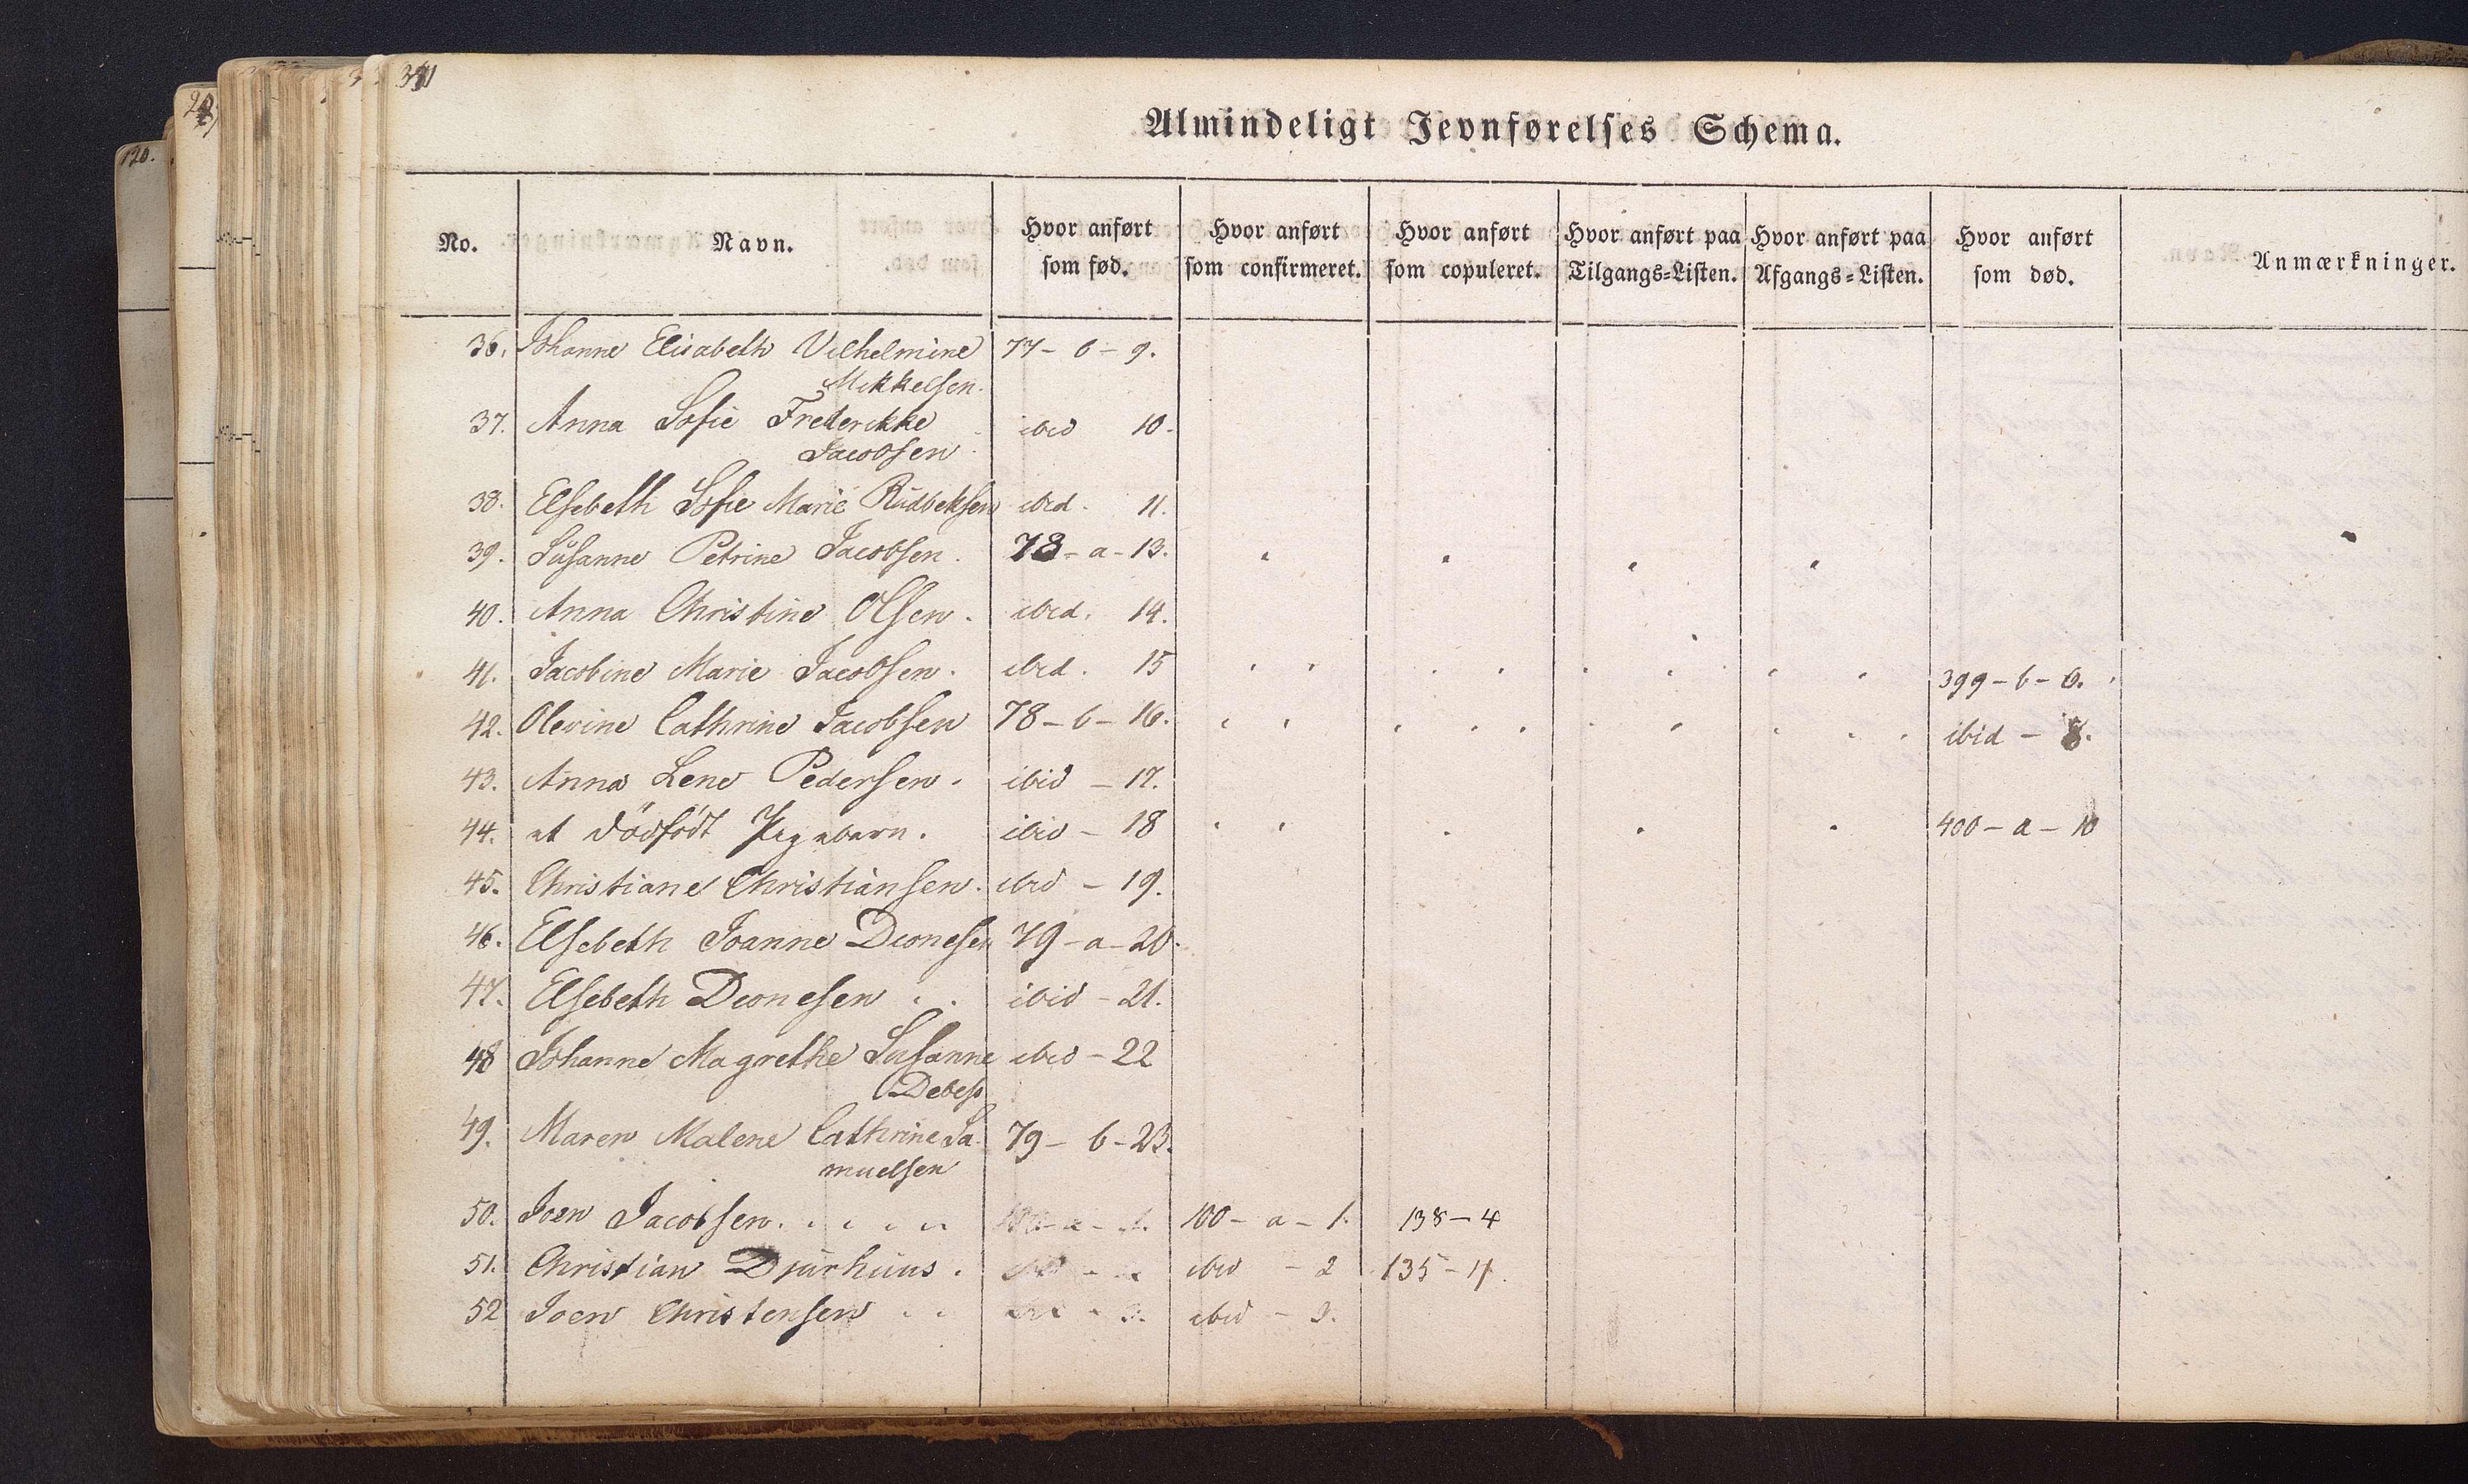 Almindeligt Jevnførelses Schema.
No. Navn. Hvor anført som fød. Hvor anført som confirmeret. Hvor anført som copuleret. Hvor anført paa Tilgangs-Listen. Hvor anført paa Afgangs-Listen. Hvor anført som død. Anmærkninger.
36. Johanne Elisabeth Vilhelmine 77 - b - 9.
Mikkelsen.
37. Anna Sofie Frederikke ibid 10.
Jacobsen
38. Elsebeth Sofie Marie Rudbeksen ibid. 11.
39. Susanne Petrine Jacobsen. 78 - a - 13.
40. Anna Christine Olsen. ibid. 14.
41. Jacobine Marie Jacobsen. ibid. 15 399 - b - 6.
42. Olevine Cathrine Jacobsen 78 - b - 16. ibid - 8.
43. Anna Lene Pedersen. ibid - 17.
44. et dödfödt Pigebarn. ibid - 18 400 - a - 10
45. Christiane Christiansen. ibid - 19.
46. Elsebeth Joanne Dionesen 79 - a - 20.
47. Elsebeth Dionesen ibid - 21.
48 Johanne Magrethe Susanne ibid - 22
Debess
49. Maren Malene Cathrine Sa- 79 - b - 23.
muelsen
50. Joen Jacobsen. 100 - a - 1. 138 - 4
51. Christian Djurhuus. ibid - 2 135 - 4.
52 Joen Christensen ibid - 3.
120.